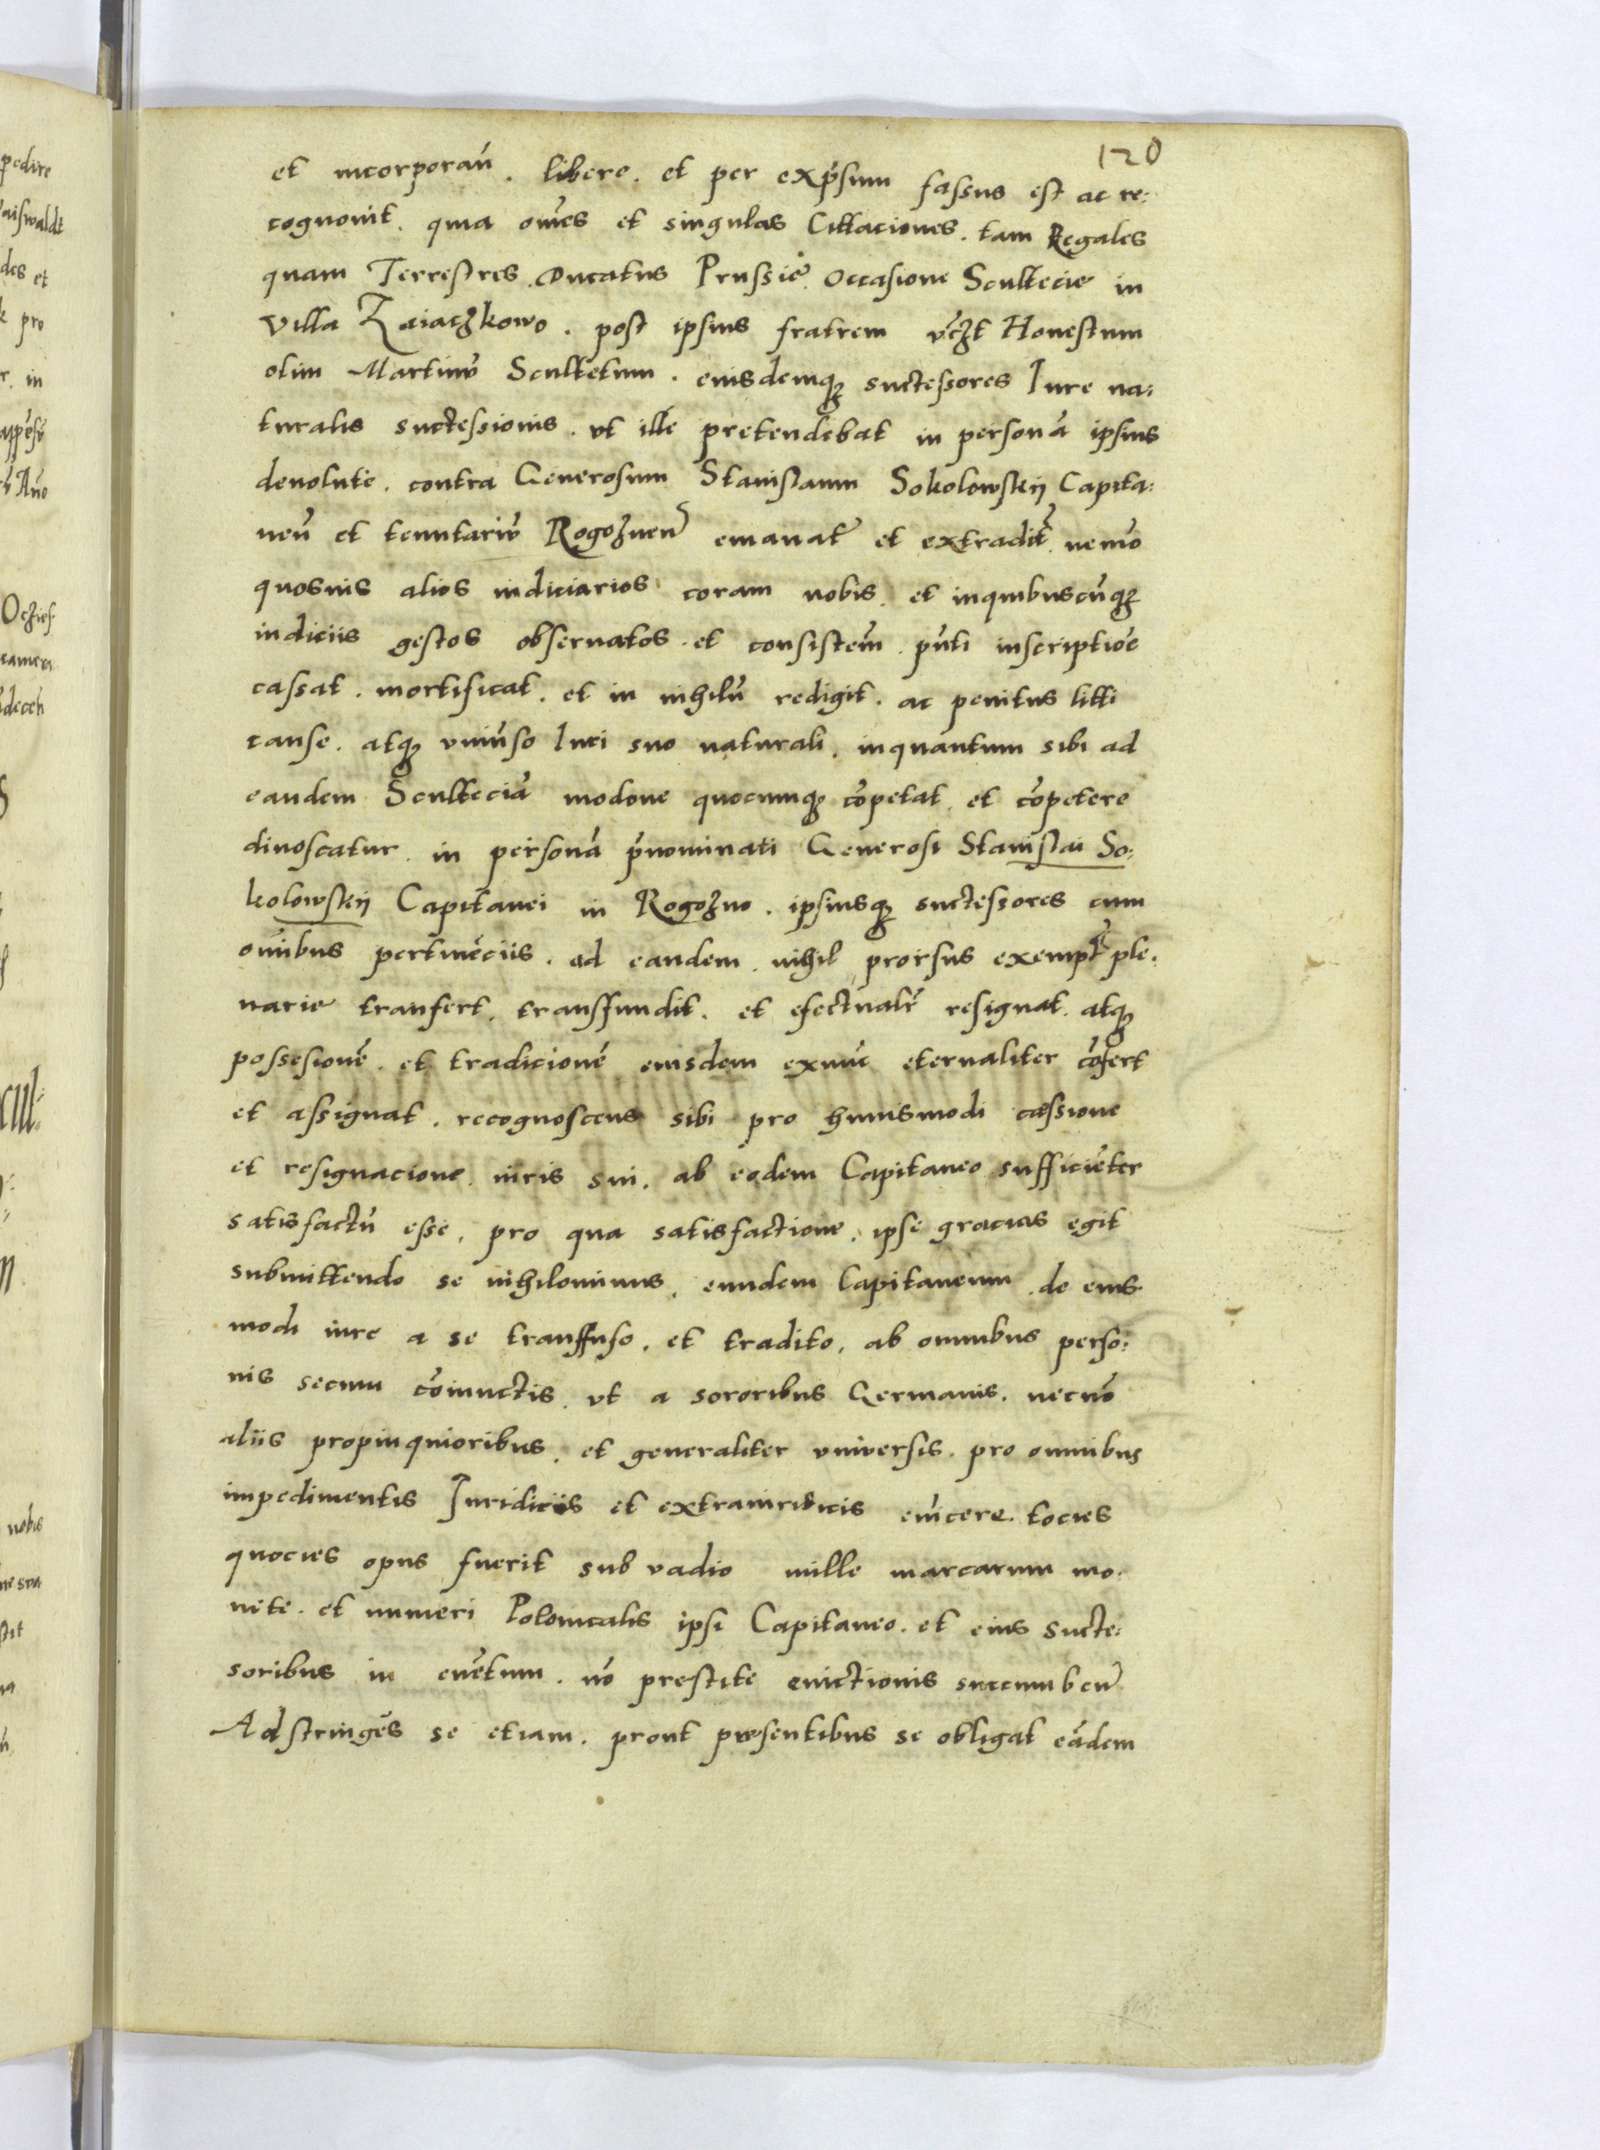 120
et incorporan̄. libere. et per exp̄sum fassus est ac re:
cognouit. quia om̄es et singulas Cittaciones. tam Regales
quam Terrestres. Ducatus Prussie. Occasione Sculтecie in
villa Zaiaczkowo. post ipsius fratrem vczt Honestum
olim Martinū Scultetum. eiusdemqʒ suctessores Iure na:
turalis suctessionis. vt ille pretendebat in personā ipsius
deuolute. contra Generosum Stanislaum Sokolowskij Capita:
neū et tenutariū Rogoznen̄ emanat̄ et extradit̄. necnō
quosuis alios iudiciarios coram nobis. et inquibuscūqʒ
iudiciis gestos obseruatos. et consistem̄. pn̄ti inscriptiōe
cassat. mortificat. et in nihilū redigit. ac penitus litti
cause. atqʒ vniūso Iuri suo naturali. inquantum sibi ad
eandem Scultecia͂ modoue quocumqʒ cōpetat. et cōpetere
dinoscatur. in personā p̄nominati Generosi Stanislai So:
kolowskij Capitanei in Rogozno. ipsiusqʒ suctessores cum
om̄ibus pertinēciis. ad eandem. nihil prorsus exempt̄ ple:
narie tranfert. transfundit. et efectualr̄ resignat. atqʒ
possesionē. et tradicionē eiusdem exnūc eternaliter cōfert
et assignat. recognoscens sibi pro huiusmodi cæssione
et resignacione. iuris sui. ab eodem Capitaneo sufficiēter
satisfactū esse. pro qua satisfactione. ipse gracias egit
submittendo se nihilominus. eundem Capitaneum. de eius
modi iure a se transfuso. et tradito. ab omnibus perso:
nis secum cōiunctis. vt a sororibus Germanis. necnō
aliis propinquioribus. et generaliter vniversis. pro omnibus
impedimentis Iuridicis et extraiuridicis euīcere. tocies
quocies opus fuerit sub vadio mille marcarum mo:
nete. et numeri Polonicalis ipsi Capitaneo. et eius sucte:
soribus in euētum. nō prestite euictionis succumben̄
Adstringēs se etiam. prout præsentibus se obligat eādem